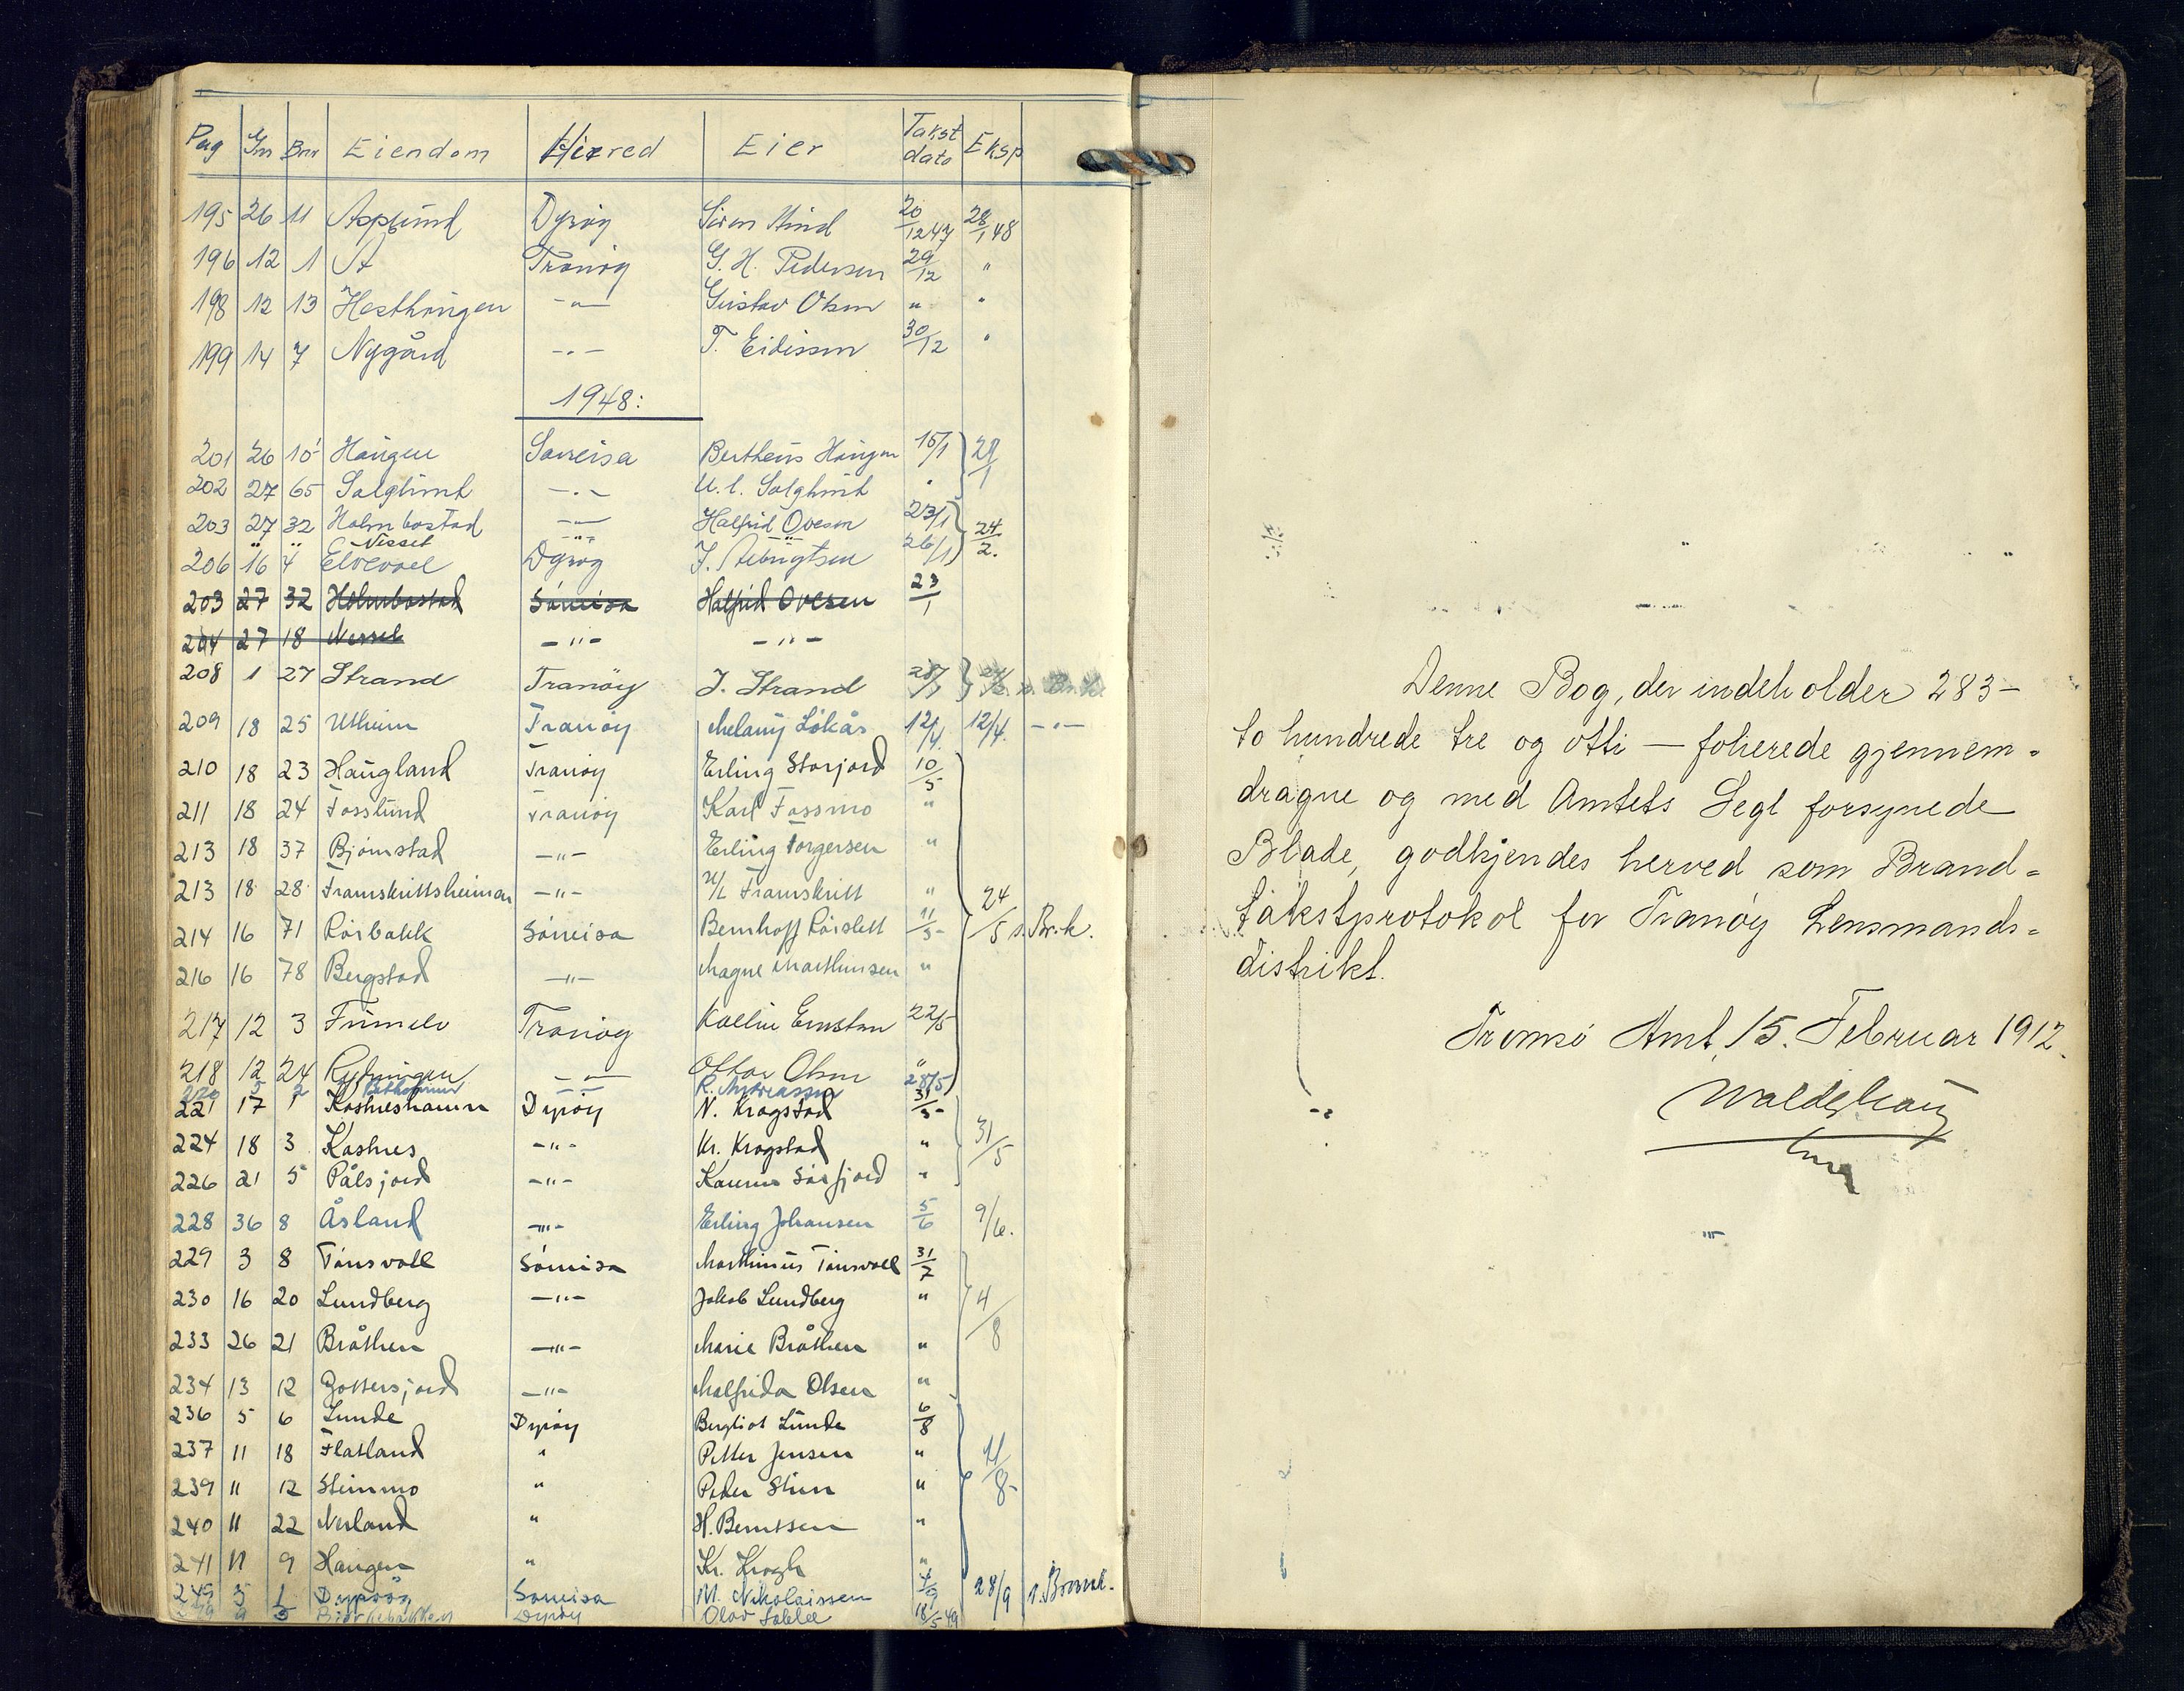 Pag Gnr Bnr Eiendom Herred Eier Takst dato Eksp
195 26 11 Asplund Dyrøy 20/12 47 28/1 48
196 12 1 Å Tranøy G. H. Pedersen 29/12 "
198 12 13 Hesthaugen -"- Gustav Olsen " "
199 14 7 Nygård -"- T. Eidissen 30/12 "
1948:
201 26 10 Haugen Sørreisa Bertheus Haugen 15/1 29/1
202 27 65 Solglimt -"- Solglimt "
203 27 32 Holmbostad -"- Halfrid Ovesen 23/1 24/2.
" " Nesset -"-
206 16 4 Elvevoll Dyrøy 26/1
203 27 32 Holmbostad Sørreisa Halfrid Ovesen 23/1
204 27 18 Nesset -"- -"-
208 1 27 Strand Tranöy J. Strand
209 18 25 Utheim Tranöy Melany Lökås 12/4. 12/4. -"-
210 18 23 Haugland Tranöy Erling Storjord 10/5
211 18 24 Fosslund Tranöy Karl Fossmo "
213 18 37 Bjørnstad -"- Erling Torgersen "
213 18 28 Framskrittsheimen -"- A/L Framskritt " 24/5 s. Br.k.
214 16 71 Rörbakk Sörreisa Bernhoff Rörslett 11/5
216 16 78 Bergstad -"- Magne Marthinsen "
217 12 3 Tranøy 22/5
218 12 24 Rytningen -"- Ottar Olsen "
220 5 2 -"- R. Andreassen 28/5
221 17 1 Kastneshamn Dyröy N. Krogstad 31/5
224 18 3 Kastnes -"- Kr. Krogstad " 31/5
226 21 5 Pålsjord -"- Sörfjord "
228 36 8 Åsland -"- Erling Johansen 5/6 9/6.
229 3 8 Tönsvoll Sörreisa Marthinus Tönsvoll 31/7
230 16 20 Lundberg -"- Jakob Lundberg " 4/8
233 26 21 Bråthen -"- Marie Bråthen "
234 13 12 Gottersjord -"- Malfrida Olsen "
236 5 6 Lunde Dyröy Bergliot Lunde 6/8
237 11 18 Flatland " Petter Jensen " 11/8
239 11 12 Steinmo " Peder Stien "
240 11 22 Nerland " H. Berntsen "
241 11 9 Haugen " Kr. Krogh "
249 3 1 Dyrøy Sørreisa M. Nikolaissen 4/9 28/9
9 5 Bjørkebakken Dyrøy Olav 18/5 49
Denne Bog, der indeholder 283 –
to hundrede tre og otti — folierede gjennem-
dragne og med Amtets Segl forsynede
Blade, godkjendes herved som Brand-
takstprotokol for Tranøy Lensmands-
distrikt.
Tromsø Amt, 15. Februar 1912.